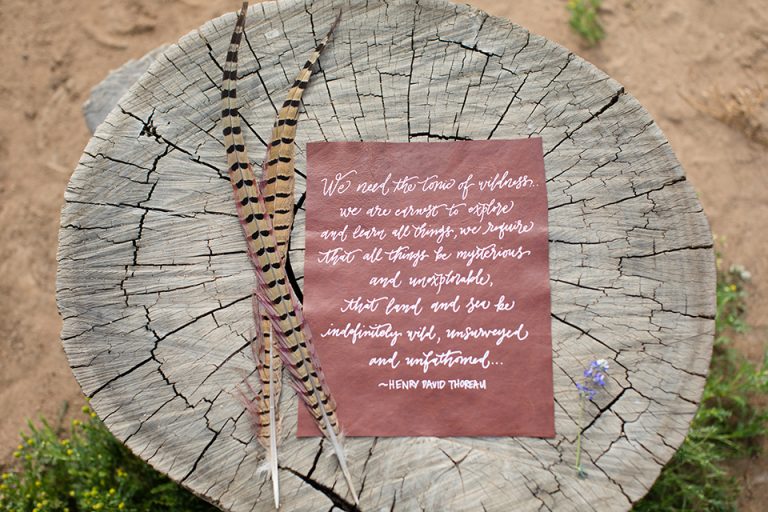 We need the tonic of wildness..
we are earnest to explore
and learn all things, we require
that all things be mysterious
and unexplorable,
that land and sea be
indefinitely wild, unsurveyed
and unfathomed...
~HENRY DAVID THOREAU